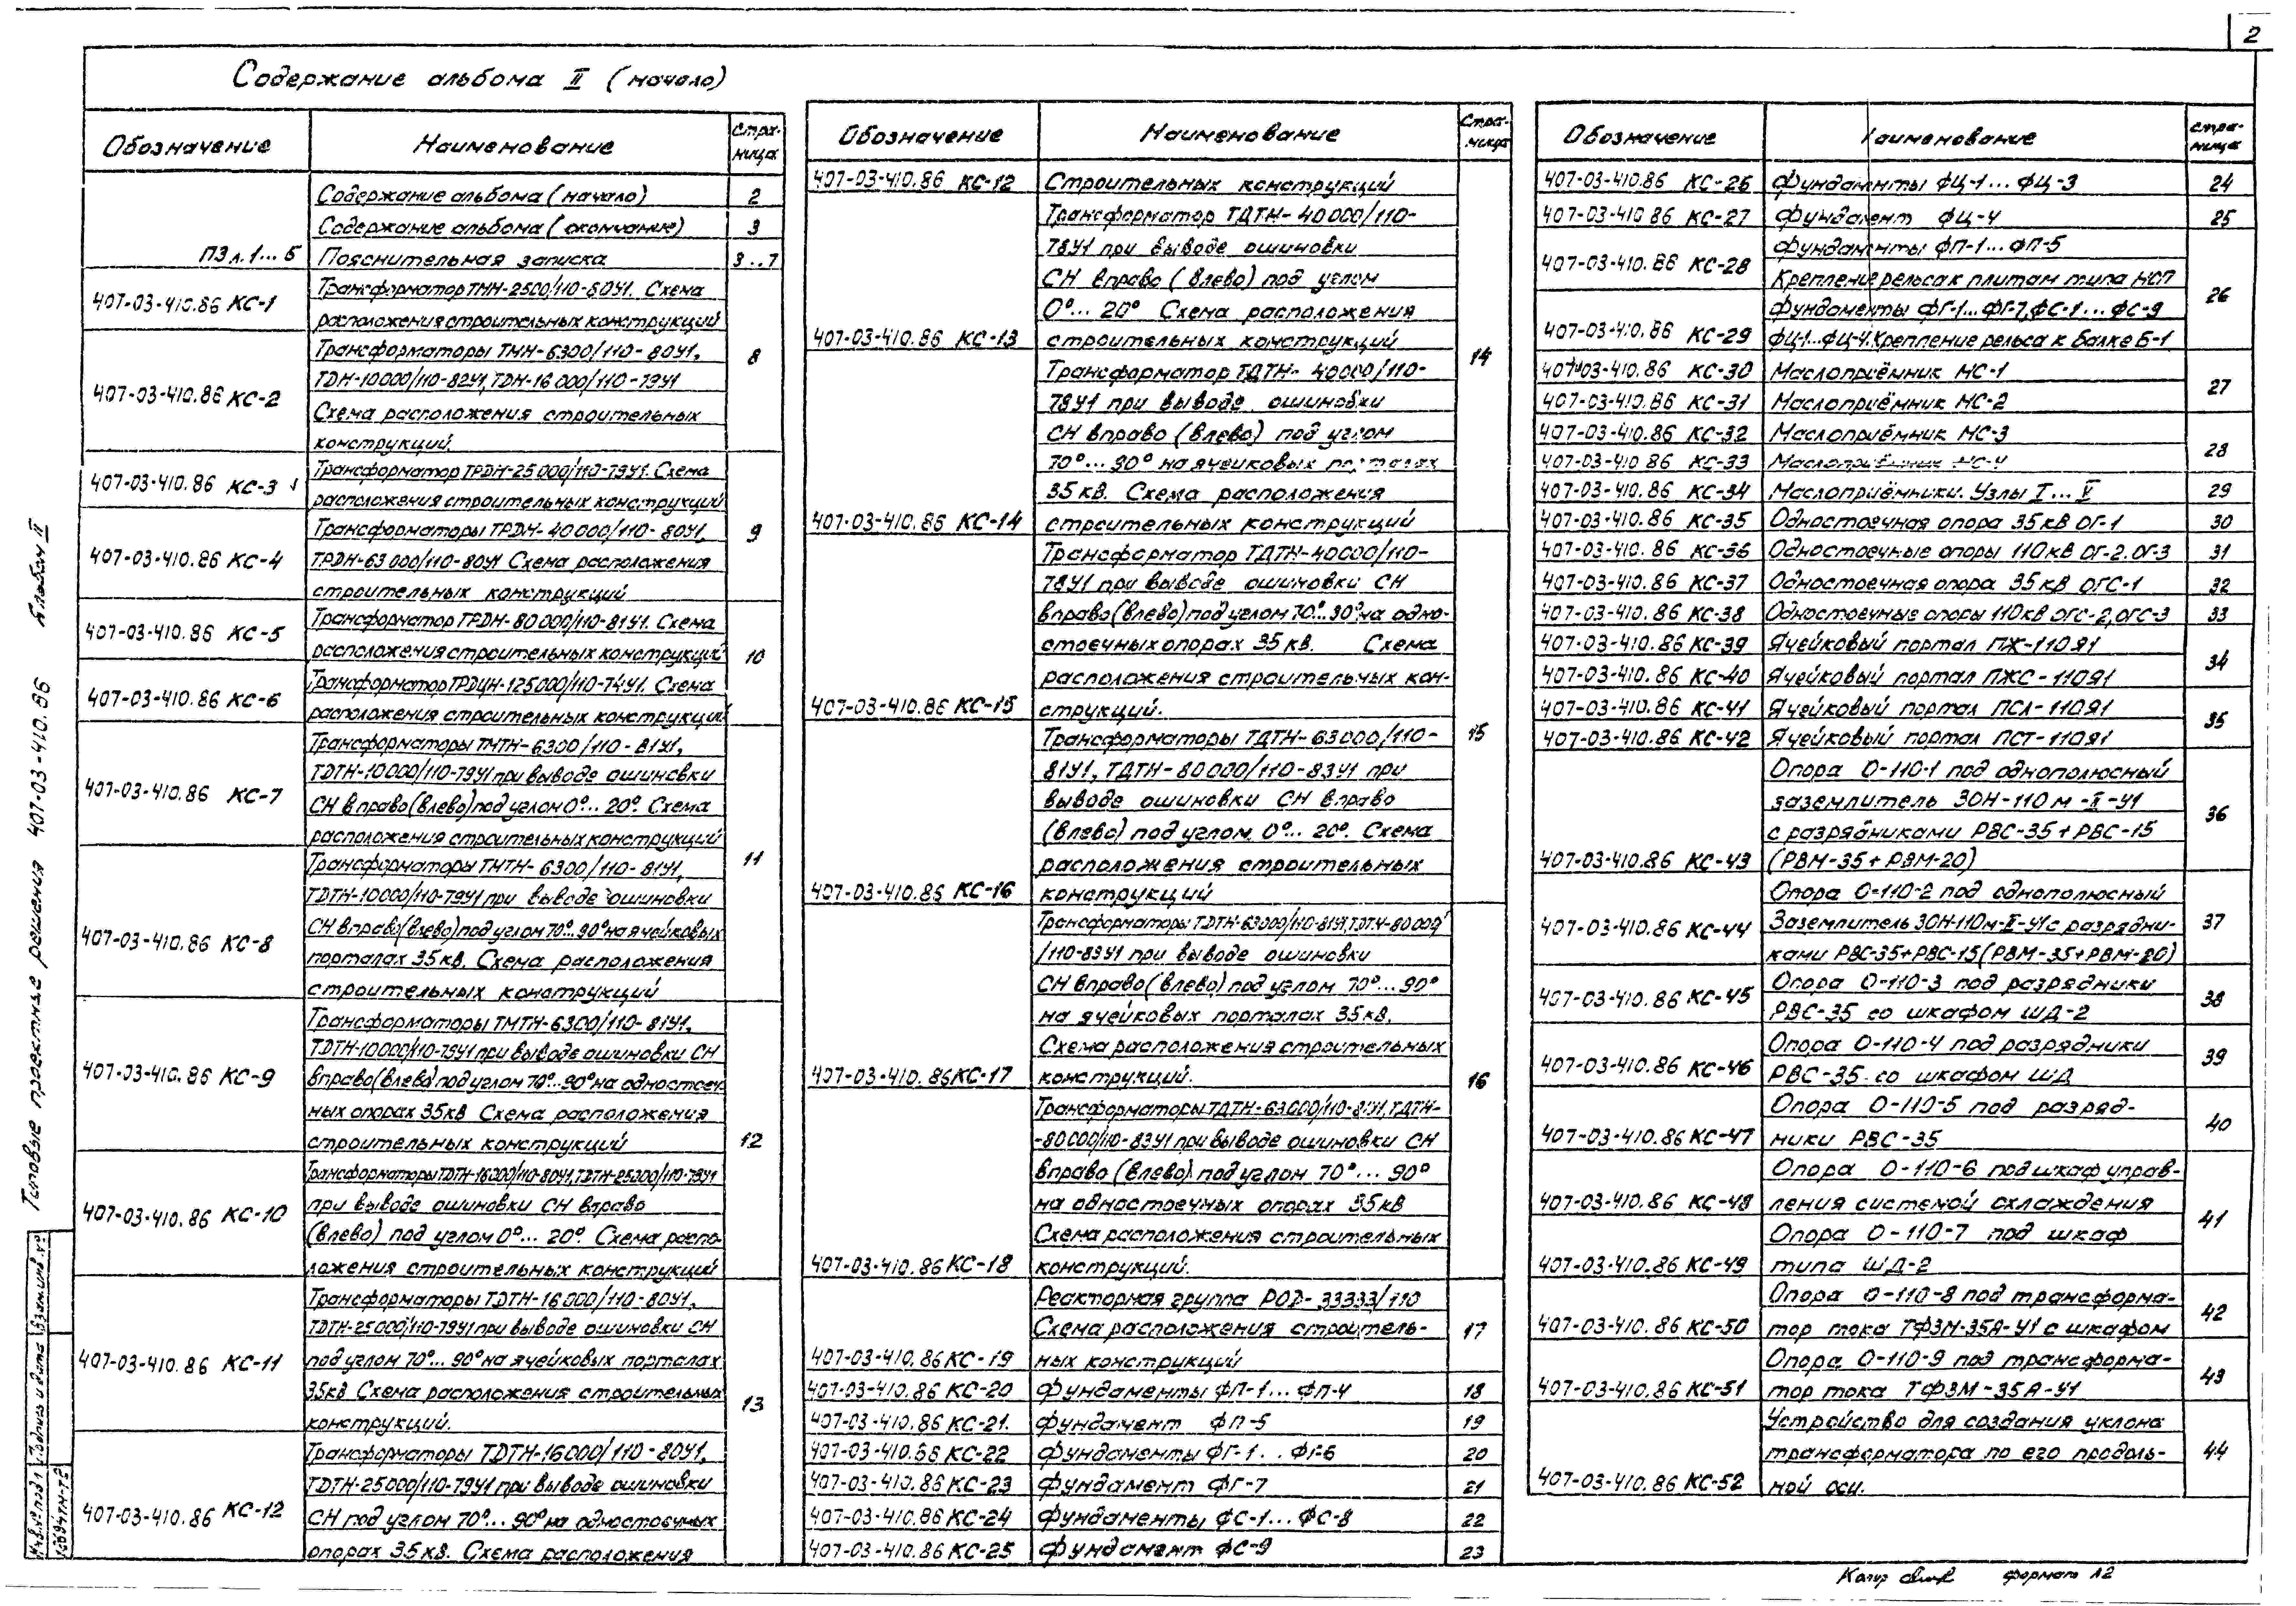 2
Содержание альбома II (начало)
Обозначение Наименование Стра-
ница
Содержание альбома (начало) 2
Содержание альбома (окончание) 3
ПЗ л. 1...5 Пояснительная записка 3..7
407-03-410.86 КС-1 Трансформатор ТМН-2500/110-80У1. Схема
расположения строительных конструкций
8
407-03-410.86 КС-2 Трансформаторы ТМН-6300/110-80У1,
ТДН-10000/110-82У1, ТДН-16000/110-79У1
Схема расположения строительных
конструкций.
407-03-410.86 КС-3 Трансформатор ТРДН-25000/110-79У1. Схема
расположения строительных конструкций
9
407-03-410.86 КС-4 Трансформаторы ТРДН-40000/110-80У1,
ТРДН-63000/110-80У1 Схема расположения
строительных конструкций
407-03-410.86 КС-5 Трансформатор ТРДН-80000/110-81У1. Схема
расположения строительных конструкций
10
407-03-410.86 КС-6 Трансформатор ТРДЦН-125000/110-74У1. Схема
расположения строительных конструкций
407-03-410.86 КС-7 Трансформаторы ТМТН-6300/110-81У1,
ТДТН-10000/110-79У1 при выводе ошиновки
СН вправо (влево) под углом 0°... 20°. Схема
расположения строительных конструкций
11
407-03-410.86 КС-8 Трансформаторы ТМТН-6300/110-81У1,
ТДТН-10000/110-79У1 при выводе ошиновки
СН вправо (влево) под углом 70°...90° на ячейковых
порталах 35кв. Схема расположения
строительных конструкций
407-03-410.86 КС-9 Трансформаторы ТМТН-6300/110-81У1,
ТДТН-10000/110-79У1 при выводе ошиновки СН
вправо (влево) под углом 70°...90° на одностоеч-
ных опорах 35кв Схема расположения
строительных конструкций
12
407-03-410.86 КС-10 Трансформаторы ТДТН-16000/110-80У1, ТДТН-25000/110-79У1
при выводе ошиновки СН вправо
(влево) под углом 0°... 20°. Схема распо-
ложения строительных конструкций
407-03-410.86 КС-11 Трансформаторы ТДТН-16000/110-80У1,
ТДТН-25000/110-79У1 при выводе ошиновки СН
под углом 70°... 90° на ячейковых порталах
35кв Схема расположения строительных
конструкций.
13
407-03-410.86 КС-12 Трансформаторы ТДТН-16000/110-80У1,
ТДТН-25000/110-79У1 при выводе ошиновки
СН под углом 70°... 90° на одностоечных
опорах 35кв. Схема расположения
Обозначение Наименование Стра-
ница
407-03-410.86 КС-12 Строительных конструкций
Трансформатор ТДТН-40000/110-
78У1 при выводе ошиновки
СН вправо (влево) под углом
0°... 20° Схема расположения
407-03-410.86 КС-13 строительных конструкций
14
Трансформатор ТДТН-40000/110-
78У1 при выводе ошиновки
СН вправо (влево) под углом
70°... 90° на ячейковых порталах
35кв. Схема расположения
407-03-410.86 КС-14 строительных конструкций
Трансформатор ТДТН-40000/110-
78У1 при выводе ошиновки СН
вправо (влево) под углом 70°...90° на одно-
стоечных опорах 35кв. Схема
расположения строительных кон-
407-03-410.86 КС-15 струкций.
15
Трансформаторы ТДТН-63000/110-
81У1, ТДТН-80000/110-83У1 при
выводе ошиновки СН вправо
(влево) под углом 0°... 20°. Схема
расположения строительных
407-03-410.86 КС-16 конструкций
Трансформаторы ТДТН-63000/110-81У1, ТДТН-80000
/110-83У1 при выводе ошиновки
СН вправо (влево) под углом 70°...90°
на ячейковых порталах 35кв.
Схема расположения строительных
407-03-410.86 КС-17 конструкций.
16
Трансформаторы ТДТН-63000/110-81У1, ТДТН-
-80000/110-83У1 при выводе ошиновки СН
вправо (влево) под углом 70°... 90°
на одностоечных опорах 35кв
Схема расположения строительных
407-03-410.86 КС-18 конструкций.
Реакторная группа РОД-33333/110
Схема расположения строитель-
17
407-03-410.86 КС-19 ных конструкций
407-03-410.86 КС-20 Фундаменты ФП-1... ФП-4 18
407-03-410.86 КС-21. Фундамент ФП-5 19
407-03-410.86 КС-22 Фундаменты ФГ-1... ФГ-6 20
407-03-410.86 КС-23 Фундамент ФГ-7 21
407-03-410.86 КС-24 Фундаменты ФС-1... ФС-8 22
407-03-410.86 КС-25 Фундамент ФС-9 23
Обозначение Наименование стра-
ница
407-03-410.86 КС-26 Фундаменты ФЦ-1... ФЦ-3 24
407-03-410.86 КС-27 Фундамент ФЦ-4 25
407-03-410.86 КС-28 Фундаменты ФП-1... ФП-5
Крепление рельса к плитам типа НСП
26
407-03-410.86 КС-29 Фундаменты ФГ-1...ФГ-7, ФС-1...ФС-9
ФЦ-1...ФЦ-4. Крепление рельса к балке Б-1
407-03-410.86 КС-30 Маслоприёмник МС-1
27
407-03-410.86 КС-31 Маслоприёмник МС-2
407-03-410.86 КС-32 Маслоприёмник МС-3
28
407-03-410.86 КС-33 Маслоприёмник МС-4
407-03-410.86 КС-34 Маслоприёмники. Узлы I... V 29
407-03-410.86 КС-35 Одностоечная опора 35кв ОГ-1 30
407-03-410.86 КС-36 Одностоечные опоры 110кв ОГ-2, ОГ-3 31
407-03-410.86 КС-37 Одностоечная опора 35кв ОГС-1 32
407-03-410.86 КС-38 Одностоечные опоры 110кв ОГС-2, ОГС-3 33
407-03-410.86 КС-39 Ячейковый портал ПЖ-110Я1
34
407-03-410.86 КС-40 Ячейковый портал ПЖС-110Я1
407-03-410.86 КС-41 Ячейковый портал ПСЛ-110Я1
35
407-03-410.86 КС-42 Ячейковый портал ПСТ-110Я1
Опора О-110-1 под однополюсный
заземлитель ЗОН-110м-II-У1
36
с разрядниками РВС-35+РВС-15
407-03-410.86 КС-43 (РВМ-35+РВМ-20)
Опора О-110-2 под однополюсный
407-03-410.86 КС-44 Заземлитель ЗОН-110м-II-У1 с разрядни- 37
ками РВС-35+РВС-15 (РВМ-35+РВМ-20)
407-03-410.86 КС-45 Опора О-110-3 под разрядники
РВС-35 со шкафом ШД-2 38
407-03-410.86 КС-46 Опора О-110-4 под разрядники
РВС-35 со шкафом ШД 39
Опора О-110-5 под разряд-
407-03-410.86 КС-47 ники РВС-35 40
Опора О-110-6 под шкаф управ-
407-03-410.86 КС-48 ления системой охлаждения
41
Опора О-110-7 под шкаф
407-03-410.86 КС-49 типа ШД-2
Опора О-110-8 под трансформа-
407-03-410.86 КС-50 тор тока ТФЗМ-35А-У1 с шкафом 42
Опора О-110-9 под трансформа-
407-03-410.86 КС-51 тор тока ТФЗМ-35А-У1 43
Устройство для создания уклона
трансформатора по его продоль- 44
407-03-410.86 КС-52 ной оси.
Типовые проектные решения 407-03-410.86 Альбом II
Инв.№ подл. Подпись и дата Взам.инв.№
Копир формат А2